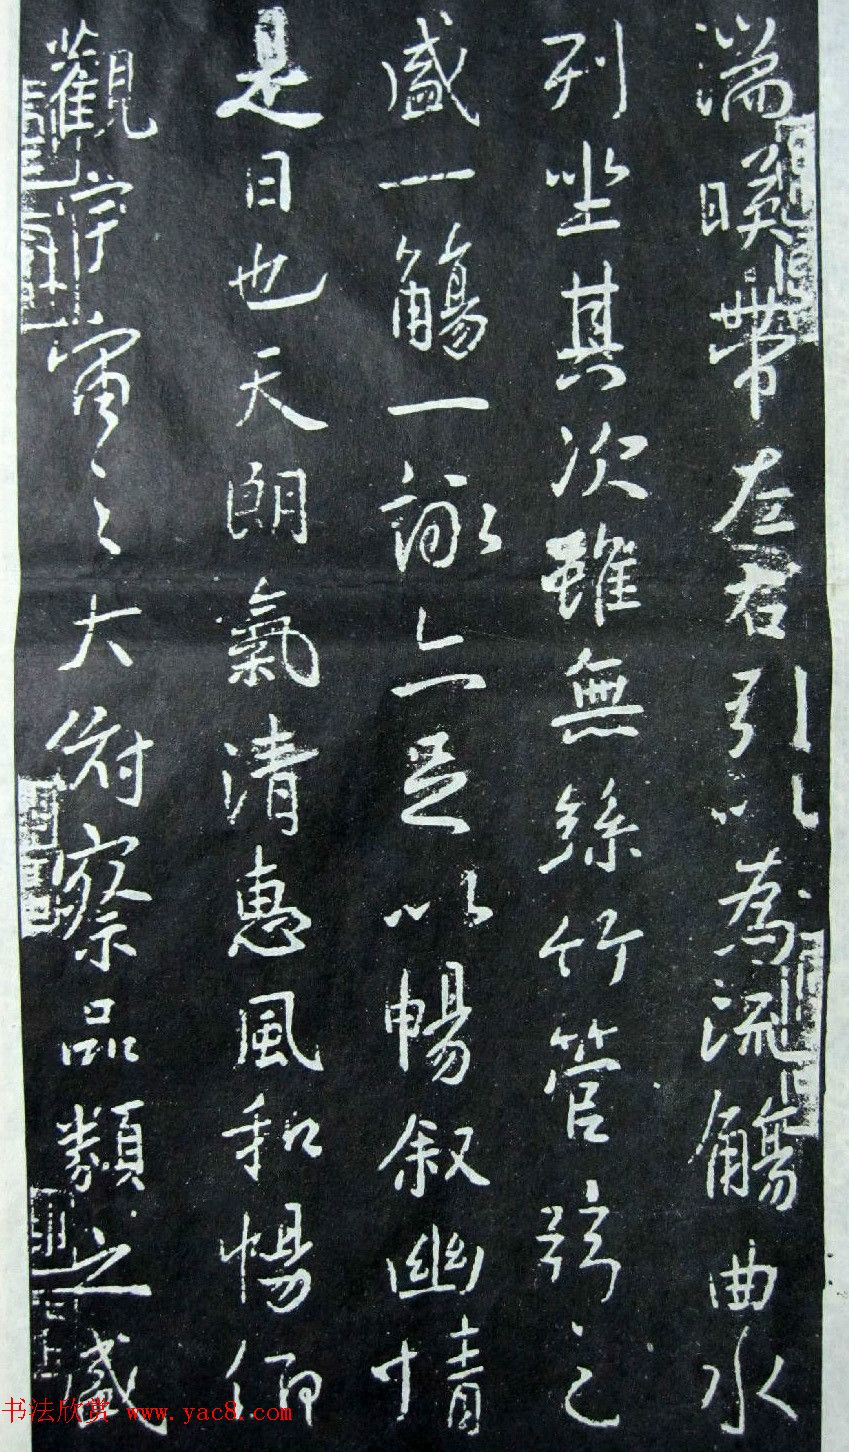 湍暎帶左右引以為流觴曲水
列坐其次雖無絲竹管弦之
盛一觴一詠亦足以暢叙幽情
是日也天朗氣清惠風和暢仰
觀宇宙之大俯察品類之盛
书法欣赏 www.yac8.com